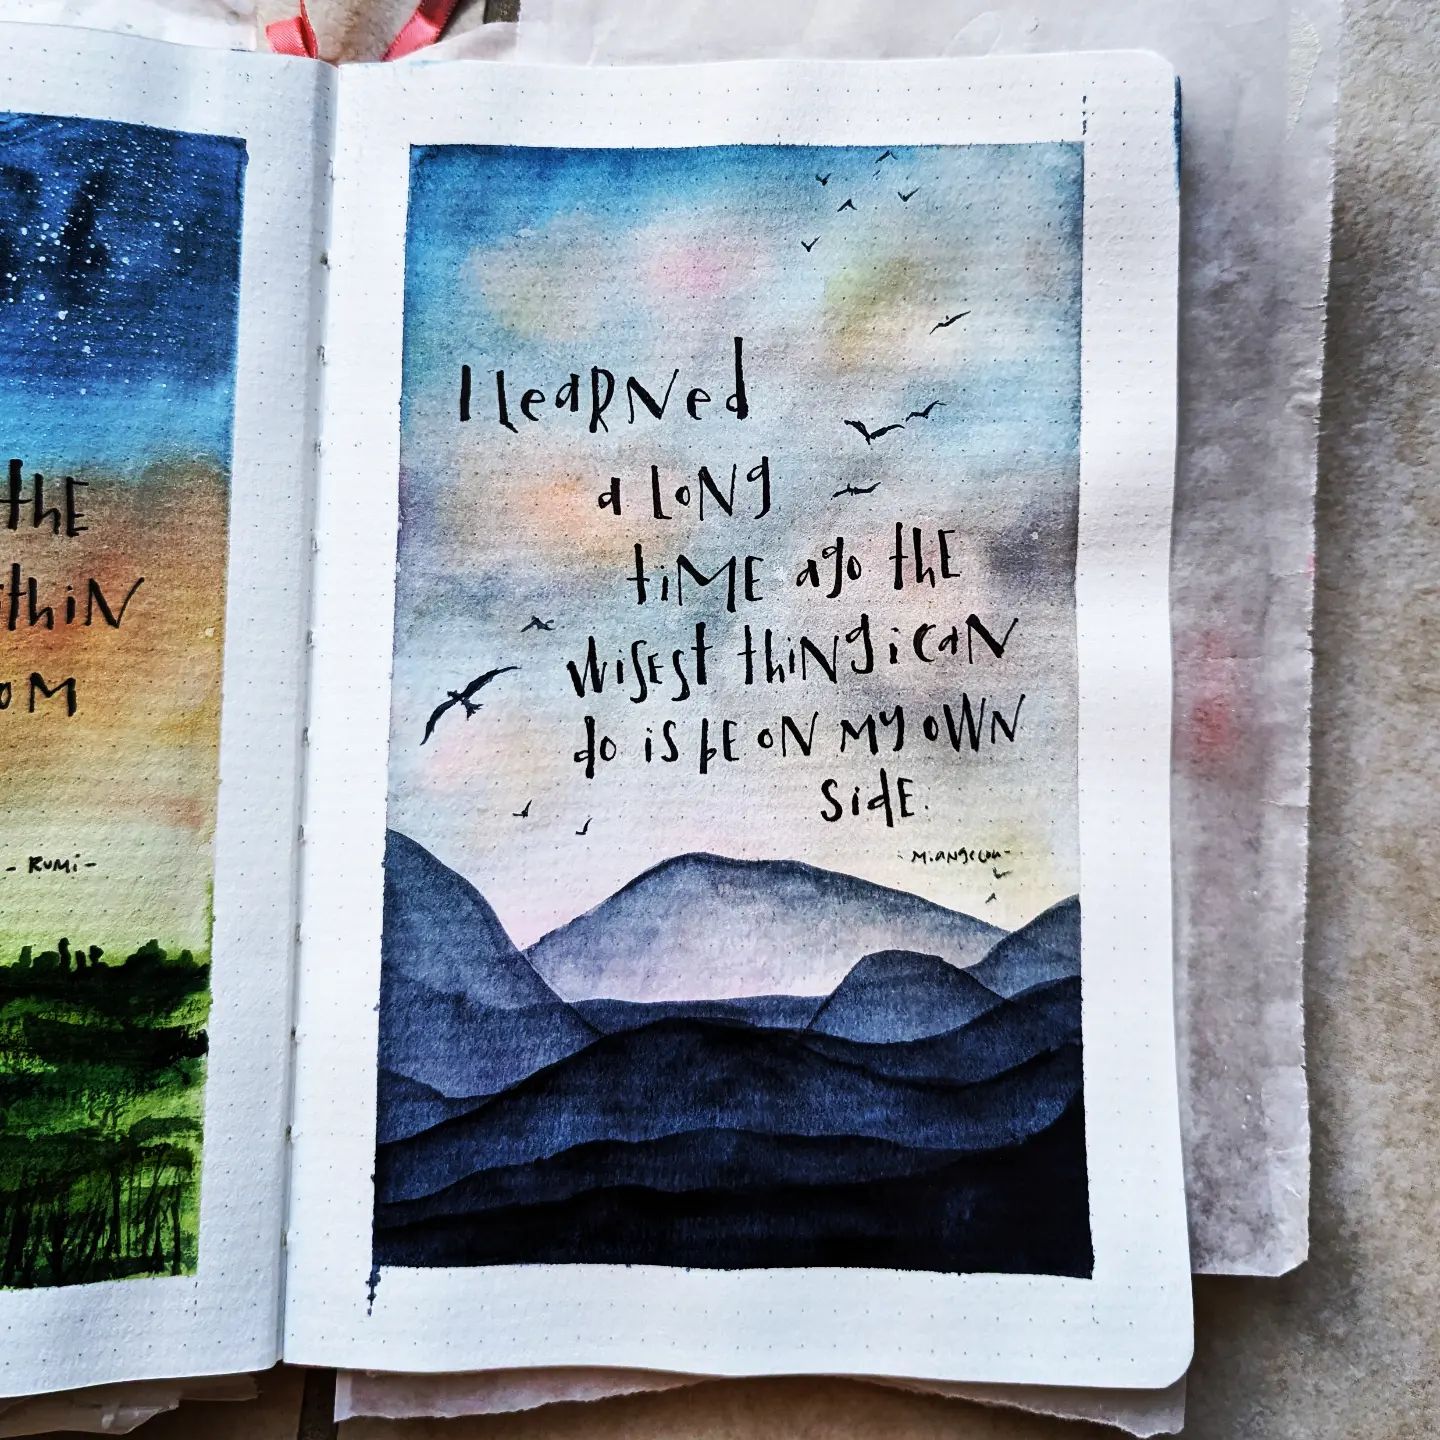 the
ithin
om
- Rumi -
I leARNed
a loNg
tiME ago thE
WisEst thiNg i caN
do is bE oN My oWN
sidE.